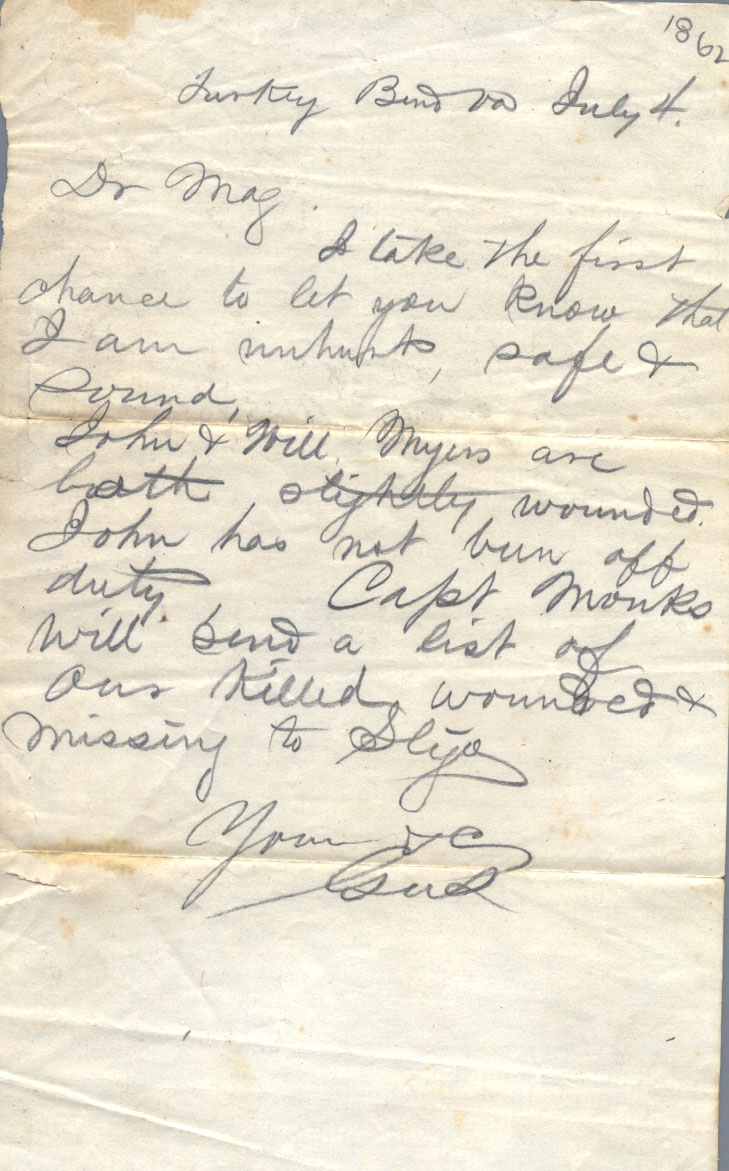 1862
Turkey Bend Va July 4.
Dr Mag.
I take the first
chance to let you know that
I am unhurt, safe &
Sound,
John & Will. Myers are
both slightly wounded.
John has not been off
duty Capt Monks
will send a list of
our killed, wounded &
missing to Sligo
Your &c
Gus